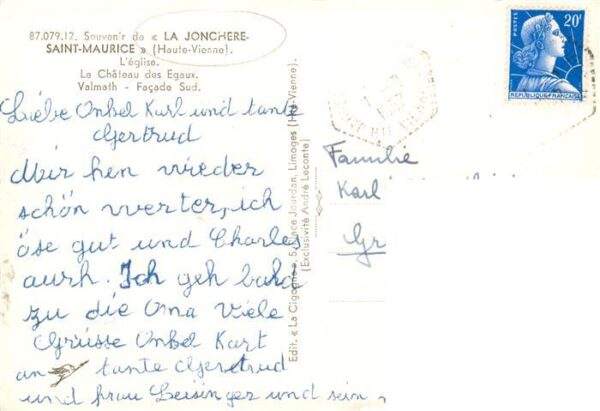 87.079.12. Souvenir de « LA JONCHERE-
SAINT-MAURICE » (Haute-Vienne).
L'église.
Le Château des Egaux.
Valmath - Façade Sud.
Liebe Onkel Karl und tante
Gertrud
Mir hen wieder
schön werter, ich
öse gut und Charles
auch. Ich geh bald
zu die Oma Viele
Grüsse Onkel Kart
an tante Gertrud
und frau Leisinger und sein
Edit. « La Cigogne », 5, place Jourdan, Limoges (Hte-Vienne).
(Exclusivité André Leconte)
20F
REPUBLIQUE FRANÇAISE
Familie
Karl
Gr